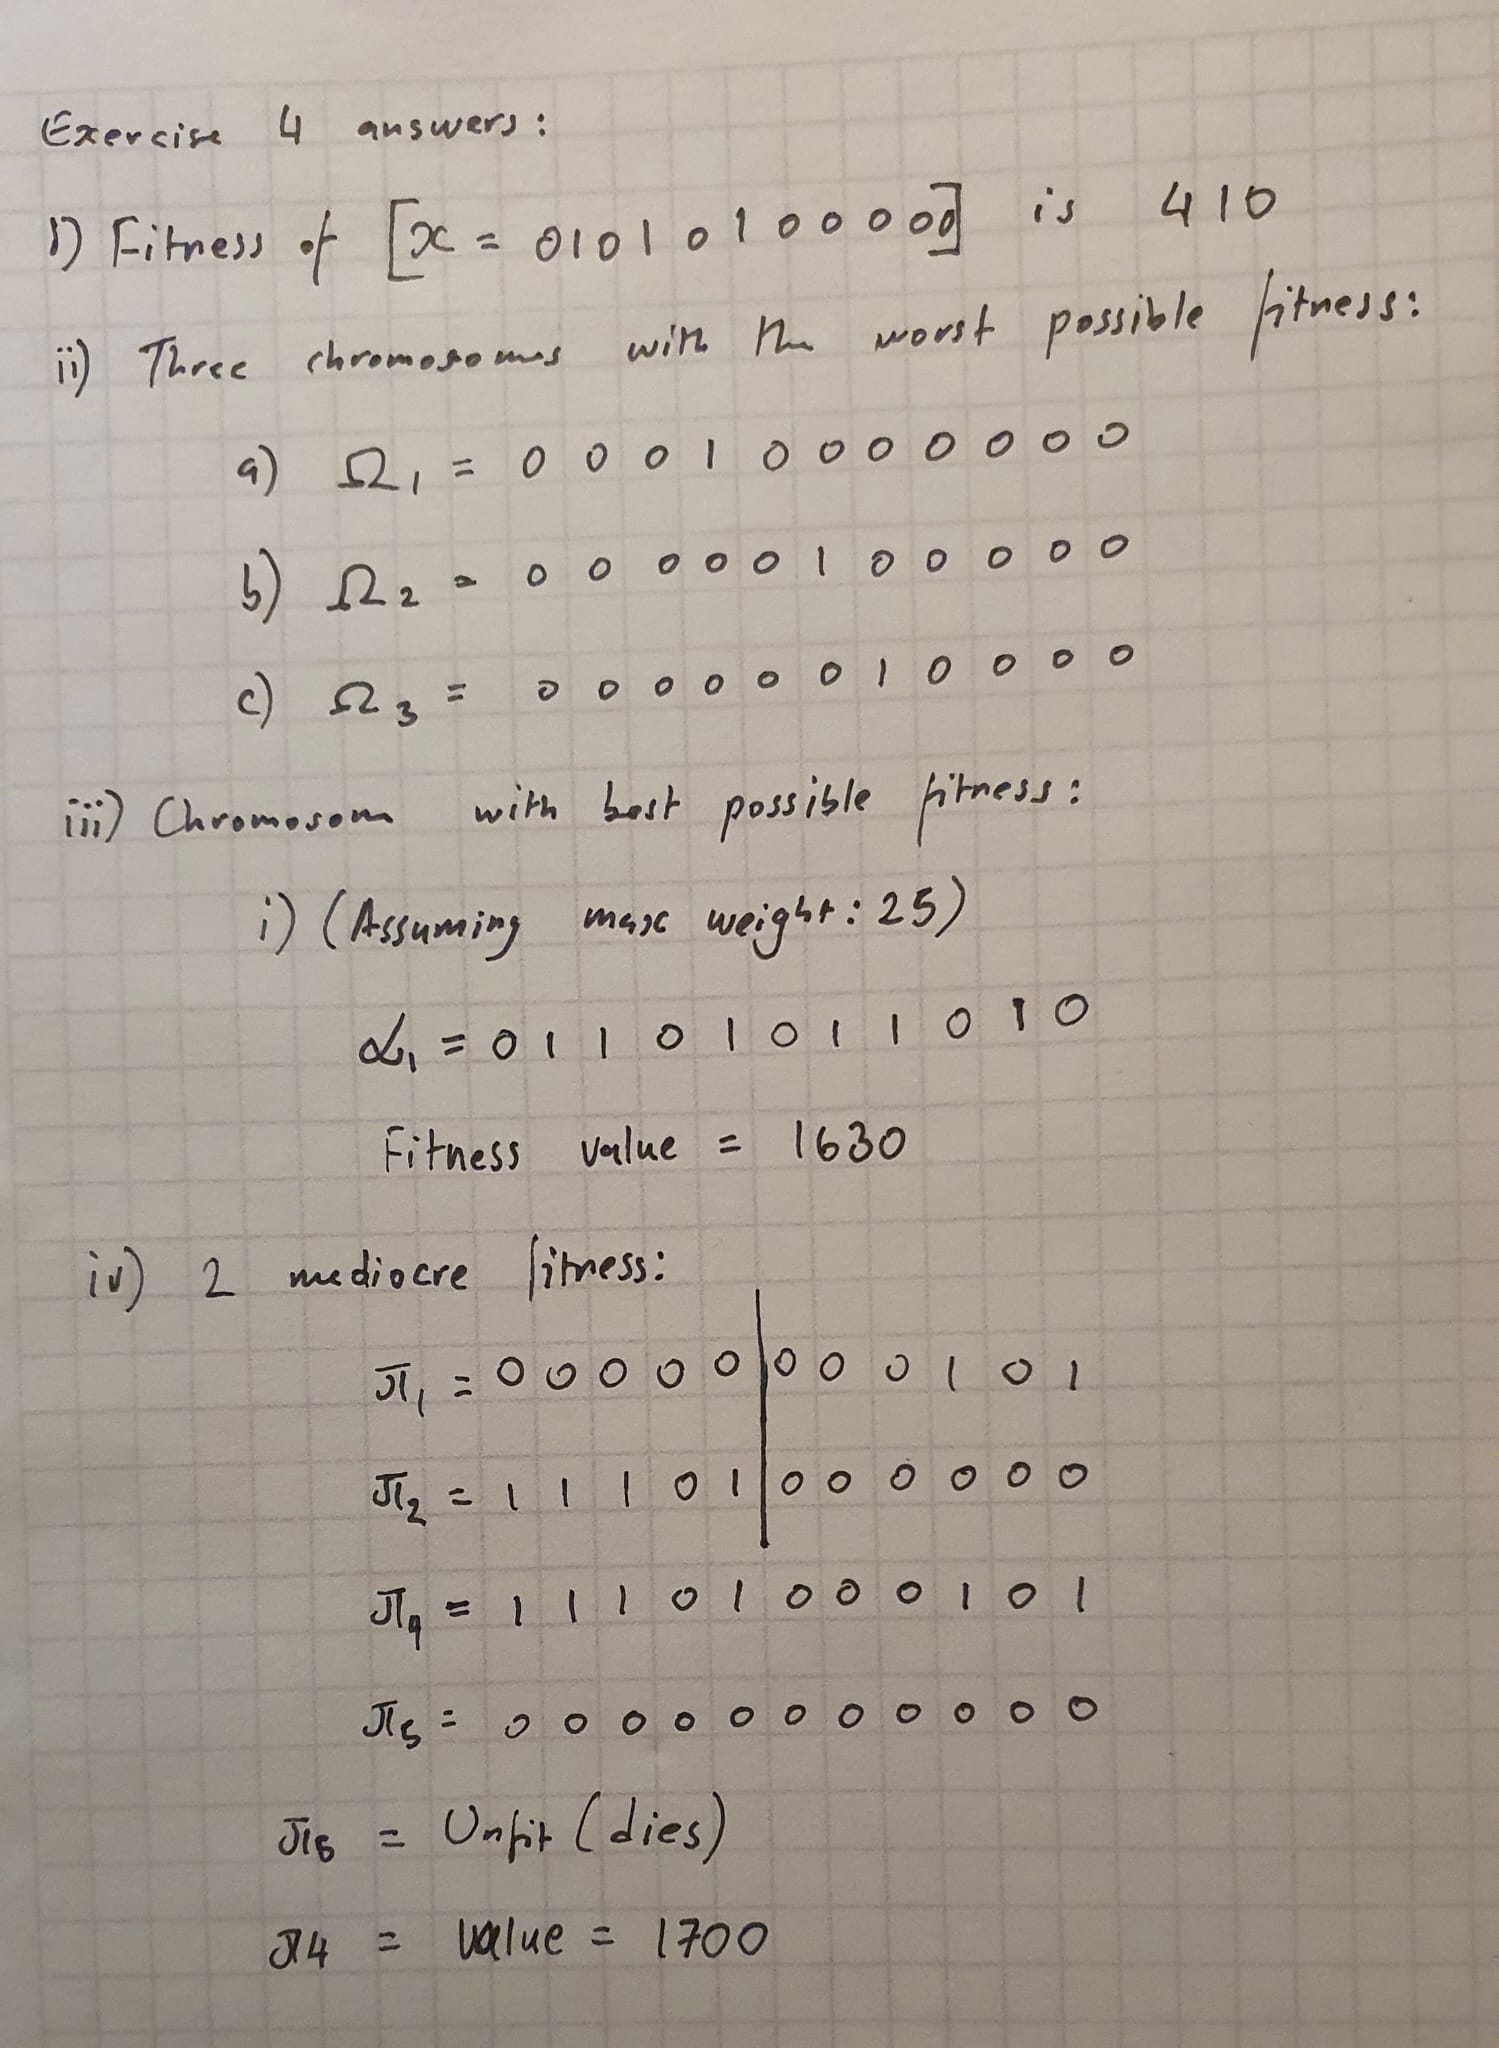 Exercise 4 answers:
1) Fitness of [x = 01010100000] is 410
ii) Three chromosomes with the worst possible fitness:
a) Ω1 = 0 0 0 1 0 0 0 0 0 0 0
b) Ω2 = 0 0 0 0 0 1 0 0 0 0 0
c) Ω3 = 0 0 0 0 0 0 1 0 0 0 0
iii) Chromosom with best possible fitness:
i) (Assuming max weight: 25)
α1 = 0 1 1 0 1 0 1 1 0 1 0
Fitness value = 1630
iv) 2 mediocre fitness:
π1 = 0 0 0 0 0 | 0 0 0 1 0 1
π2 = 1 1 1 0 1 | 0 0 0 0 0 0
π4 = 1 1 1 0 1 0 0 0 1 0 1
π5 = 0 0 0 0 0 0 0 0 0 0 0
π5 = Unfit (dies)
π4 = value = 1700